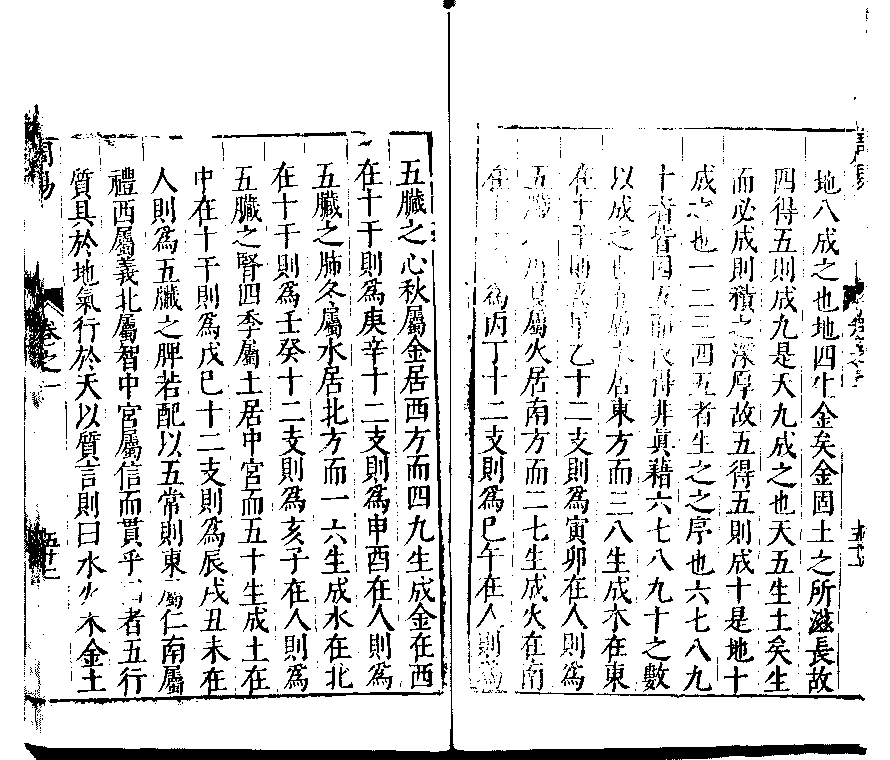 地八成之也地四生金矣金固土之所滋長故
四得五則成九是天九成之也天五生土矣生
而必成則積之深厚故五得五則成十是地十
成之也一二三四五者生之之序也六七八九
十者皆因五而後得非眞藉六七八九十之數
以成之也 屬木居東方而三八生成木在東
在十干則爲甲乙十二支則爲寅卯在人則爲
五臟 屬火居南方而二七生成火在南
在十 爲丙丁十二支則爲巳午在人則爲
五臟之心秋屬金居西方而四九生成金在西
在十干則爲庚辛十二支則爲申酉在人則爲
五臟之肺冬屬水居北方而一六生成水在北
在十干則爲壬癸十二支則爲亥子在人則爲
五臟之腎四季屬土居中宮而五十生成土在
中在十干則爲戊巳十二支則爲辰戌丑未在
人則爲五臟之脾若配以五常則東屬仁南屬
禮西屬義北屬智中宮屬信而貫乎 者五行
質具於地氣行於天以質言則曰水火木金土
周易
卷之一